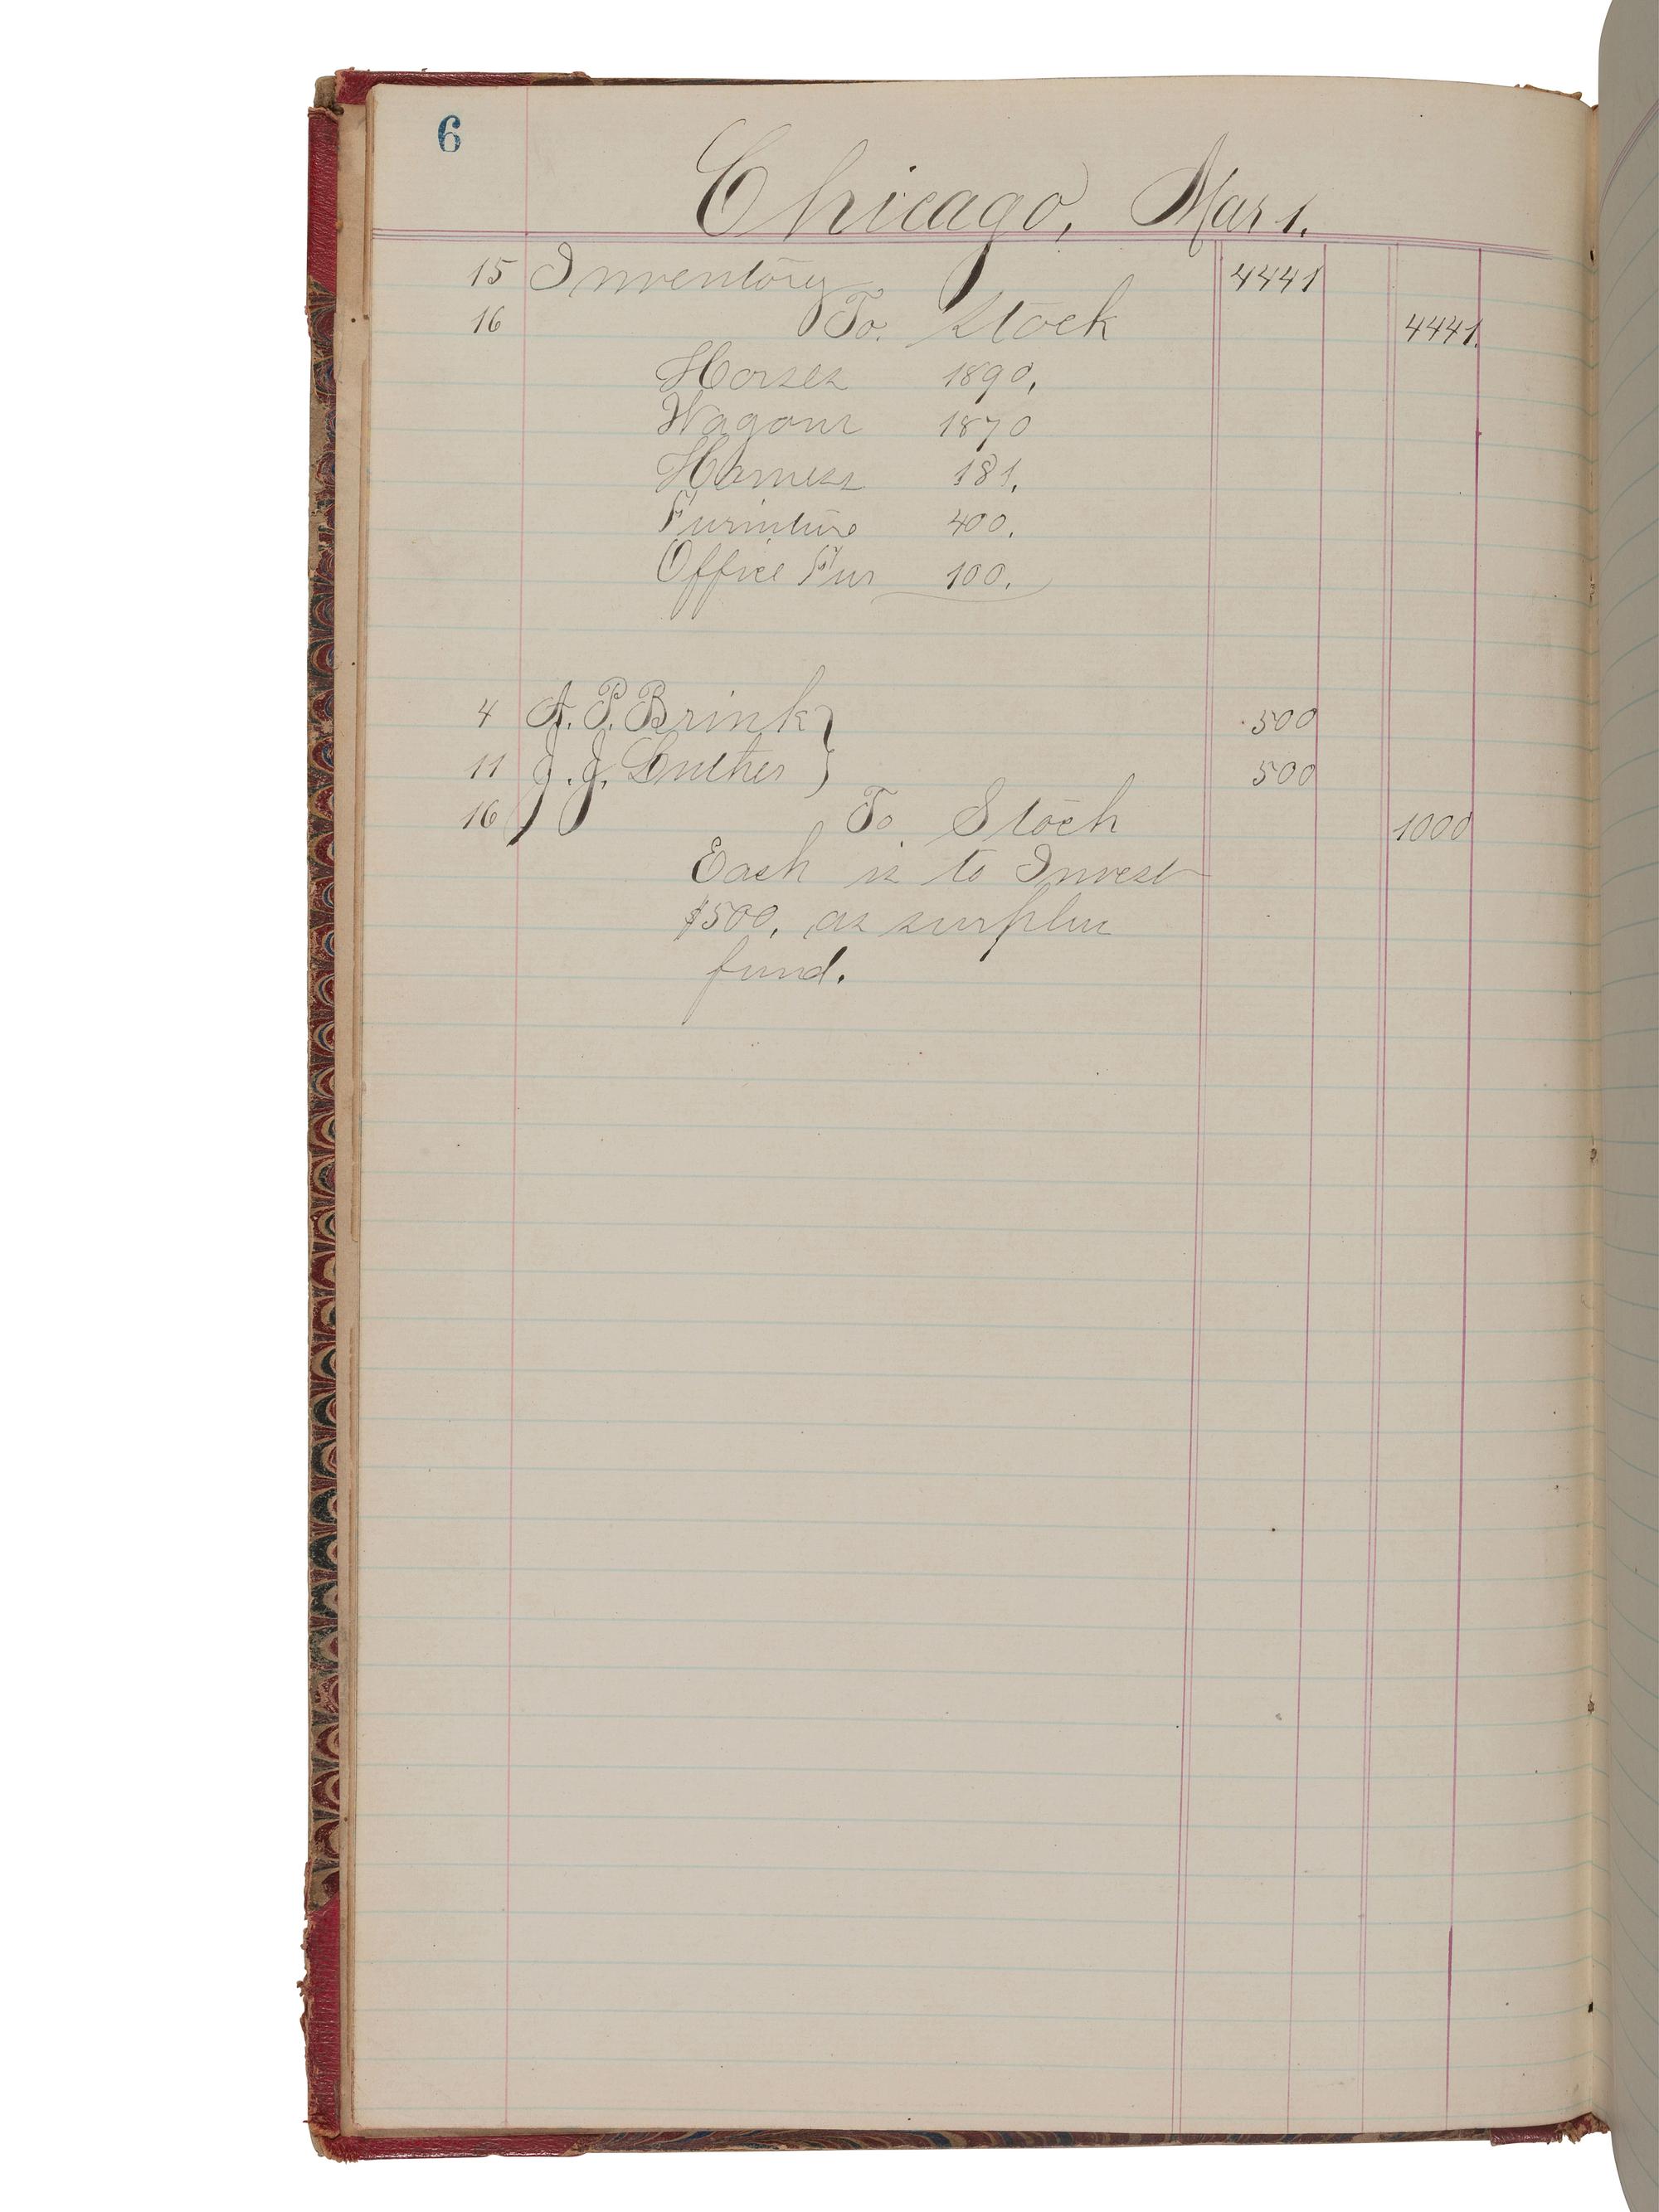 6
Chicago, Mar 1.
15 Inventory 4441
16 To Stock 4441.
Horses 1890.
Wagons 1870
Harness 181.
Furniture 400.
Office Fur 100.
4 A. P. Brink } 500
11 J. J. Luther } 500
16 To Stock 1000
Each is to Invest
$500. as surplus
fund.